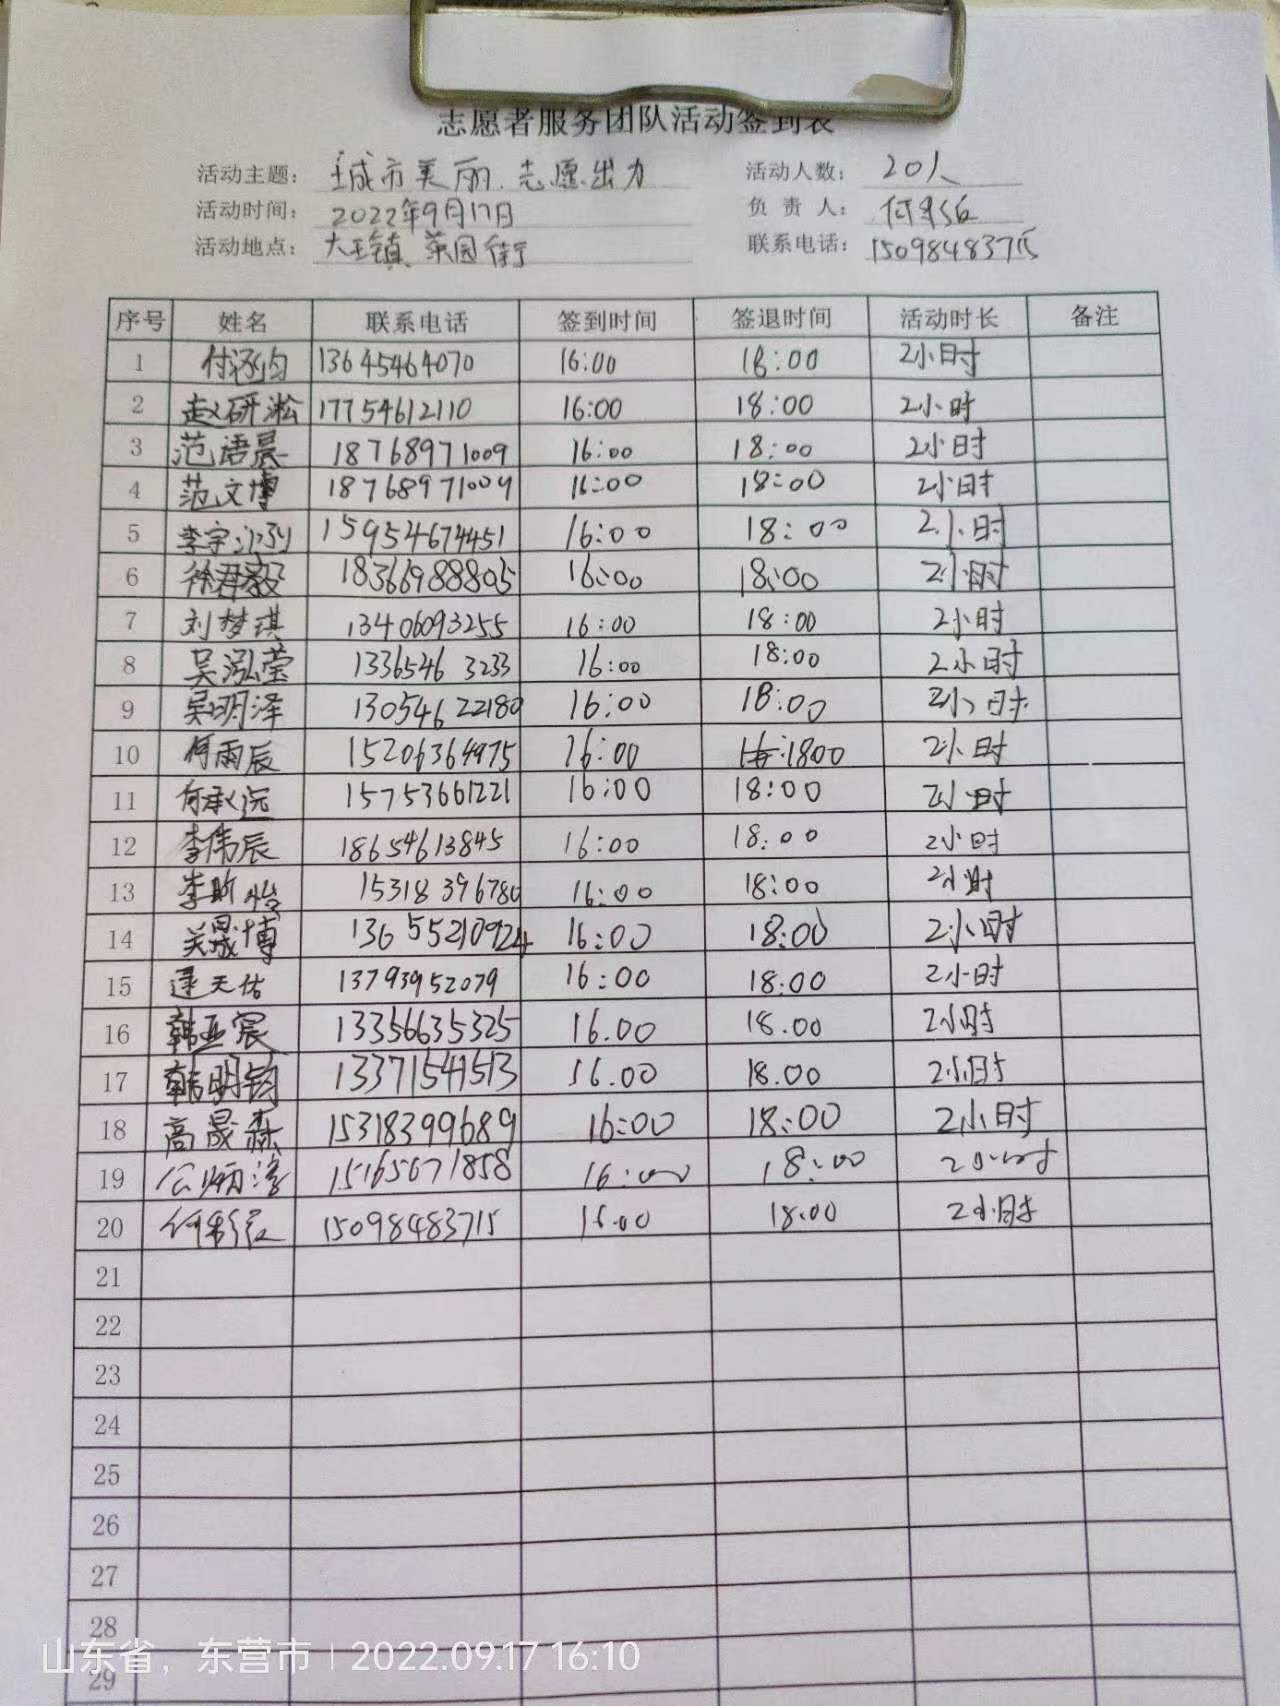 志愿者服务团队活动签到表
活动主题： 城市美丽、志愿出力 活动人数： 20人
活动时间： 2022年9月17日 负 责 人：
活动地点： 大王镇 菜园街 联系电话： 15098483715
序号 姓名 联系电话 签到时间 签退时间 活动时长 备注
1 付涵钧 13645464070 16:00 18:00 2小时
2 赵研淞 17754612110 16:00 18:00 2小时
3 范语晨 18768971009 16:00 18:00 2小时
4 范文博 18768971009 16:00 18:00 2小时
5 李宇 15954674451 16:00 18:00 2小时
6 徐君毅 18366988805 16:00 18:00 2小时
7 刘梦琪 13406093255 16:00 18:00 2小时
8 吴泓莹 1336546 3233 16:00 18:00 2小时
9 吴明泽 13054622180 16:00 18:00 2小时
10 何雨辰 15206364975 16:00 1800 2小时
11 何承远 15753661221 16:00 18:00 2小时
12 李伟辰 18654613845 16:00 18:00 2小时
13 李昕怡 15318396780 16:00 18:00 2小时
14 关晟博 13655210924 16:00 18:00 2小时
15 天佑 13793952079 16:00 18:00 2小时
16 韩亚宸 13356635325 16.00 18.00 2小时
17 韩明钧 13371541513 16.00 18.00 2小时
18 高晟森 15318399689 16:00 18:00 2小时
19 公炳淳 15165671858 16:00 18:00 2小时
20 15098483715 16.00 18.00 2小时
21
22
23
24
25
26
27
28
山东省，东营市 | 2022.09.17 16:10
29